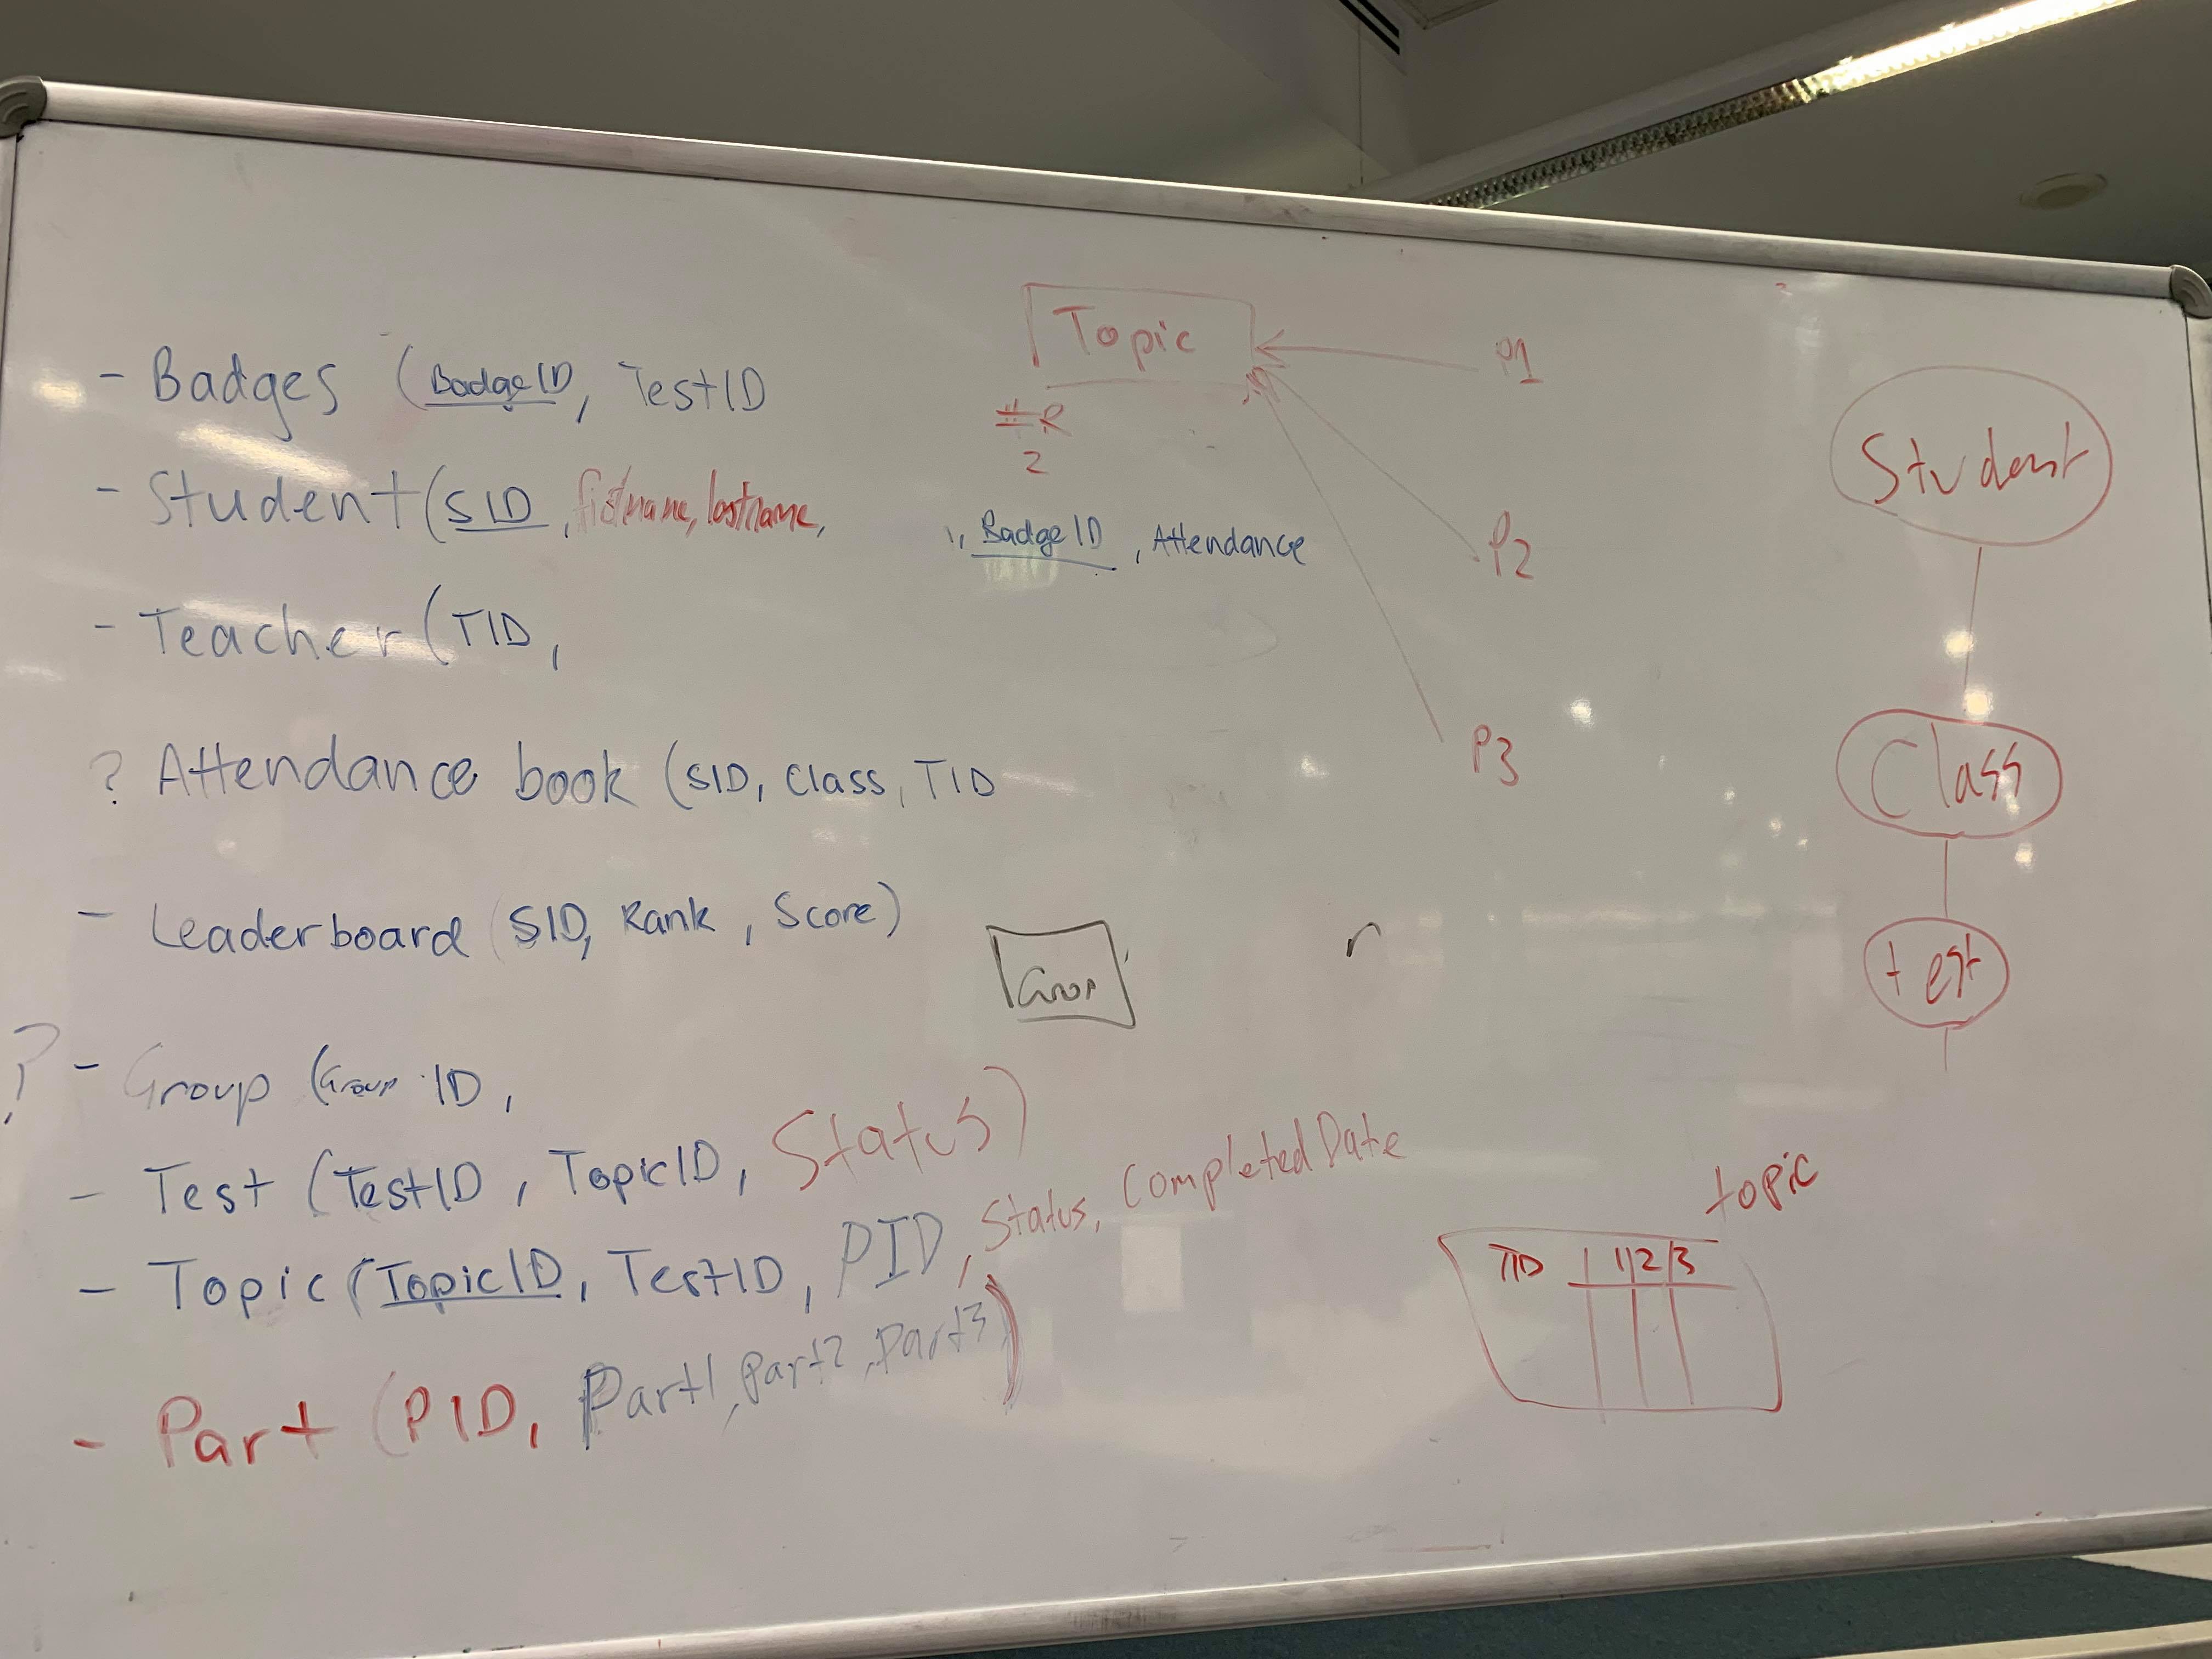 - Badges (BadgeID, TestID
- Student (SID, fistname, lastname, , BadgeID, Attendance
- Teacher (TID,
? Attendance book (SID, Class, TID
- Leaderboard (SID, Rank, Score)
? - Group (Group ID,
- Test (TestID, TopicID, Status)
- Topic (TopicID, TestID, PID, Status, Completed Date
- Part (PID, Part1, Part2, Part3)
Topic
2
P1
P2
P3
Student
Class
test
topic
TID 1 2 3